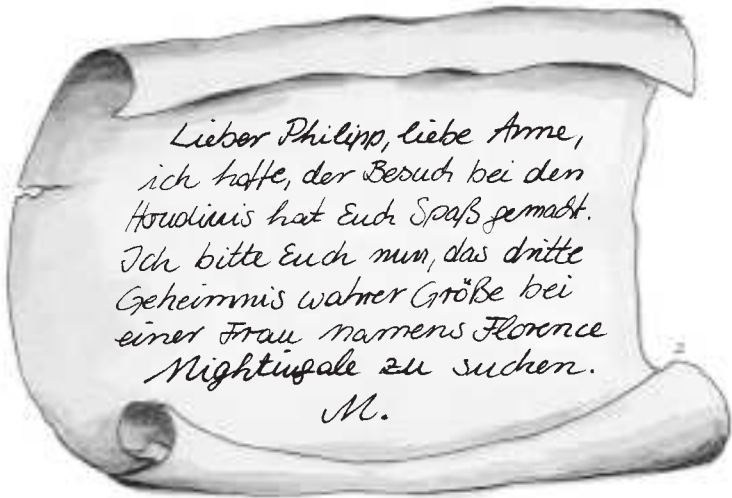 Lieber Philipp, liebe Anne,
ich hoffe, der Besuch bei den
Houdinis hat Euch Spaß gemacht.
Ich bitte Euch nun, das dritte
Geheimnis wahrer Größe bei
einer Frau namens Florence
Nightingale zu suchen.
M.